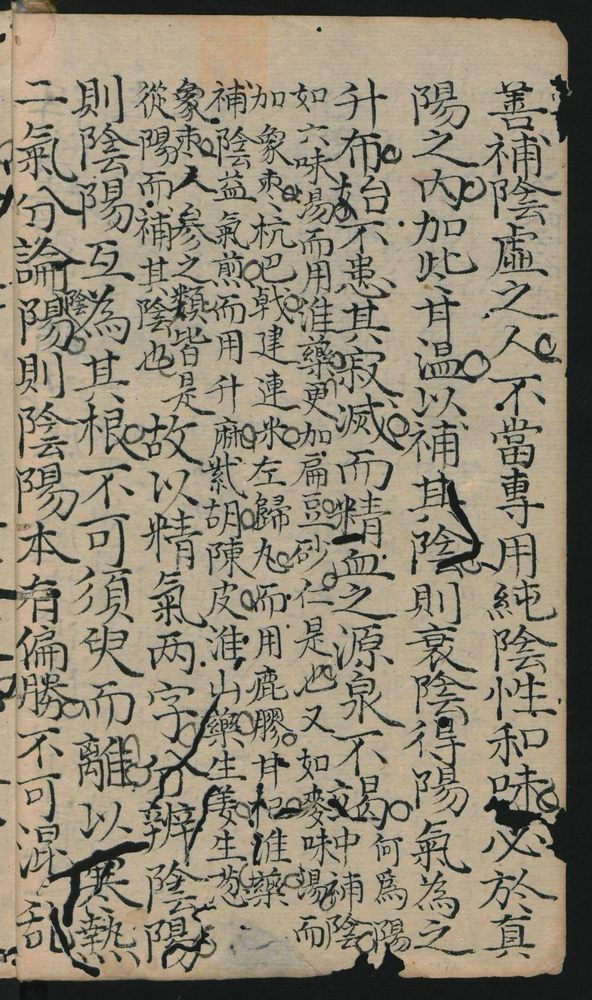 善補陰虛之人不當專用純陰性和味必於真
陽之內加此甘溫以補其陰則衰陰得陽氣為之
升布始不患其寂滅而精血之源泉不竭何爲陽
中補陰
如六味湯而用淮藥更加扁豆砂仁是也又如麥味湯而
加象枣杭巴戟建連米左歸丸而用鹿膠甘杞淮藥
補陰益氣煎而用升麻紫胡陳皮淮山藥生姜生葱
象枣人參之類皆是
從陽而補其陰也故以精氣两字分辨陰陽
則陰陽互為其根不可須臾而離以寒熱
二氣分論陰陽則陰陽本有偏勝不可混乱